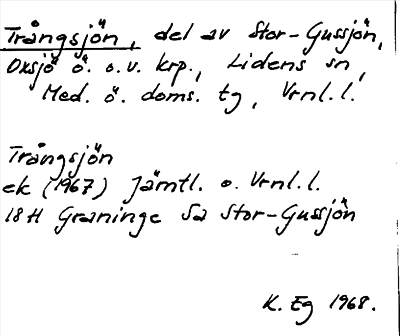 Trångsjön, del av Stor-Gussjön,
Oxsjö ö. o.v. krp., Lidens sn,
Med. ö. doms. tg, Vrnl.l.
Trångsjön
ek (1967) Jämtl. o. Vrnl.l.
18H Graninge 5a Stor-Gussjön
K. Eg 1968.